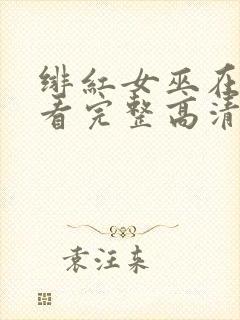 绯红女巫在
看完整高清
袁汪东